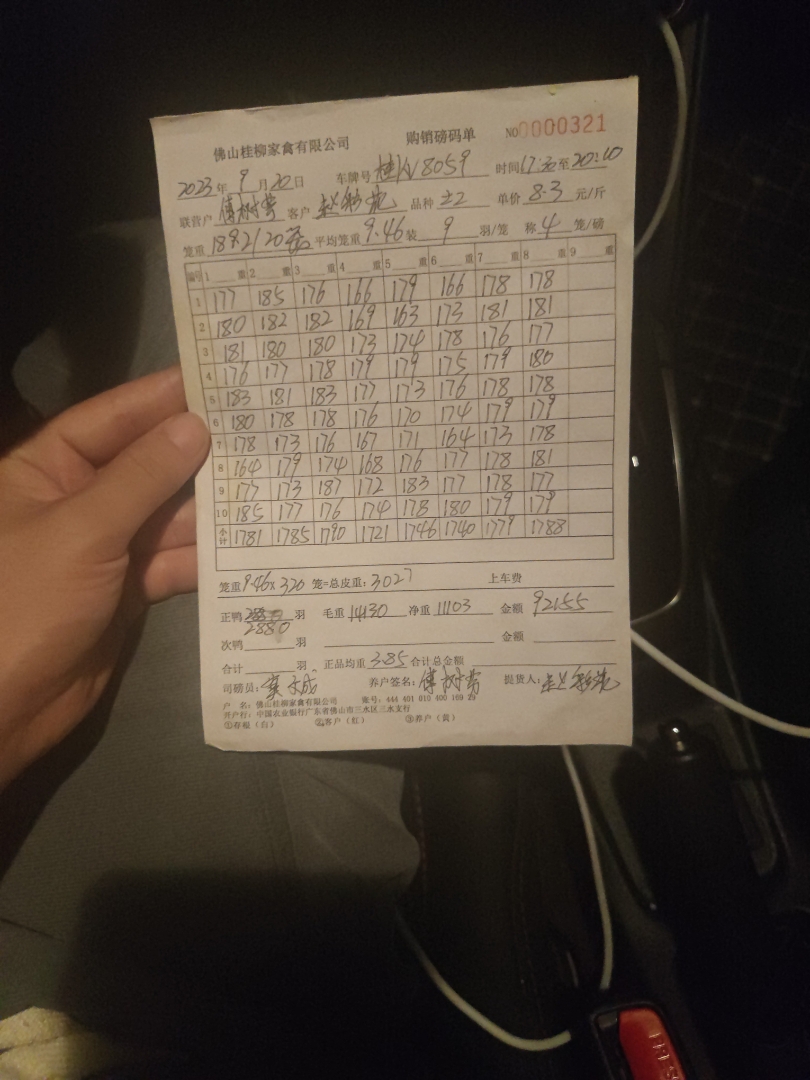 佛山桂柳家禽有限公司 购销磅码单 NO 0000321
2023年 9月 20日 车牌号 桂N8059 时间 17:30 至 20:10
联营户 傅树营 客户 品种 土2 单价 8.3 元/斤
笼重 1892/20 平均笼重 9.46 装 9 羽/笼 称 4 笼/磅
编号 1 重 2 重 3 重 4 重 5 重 6 重 7 重 8 重 9 重
1 177 185 176 166 179 166 178 178
2 180 182 182 169 163 173 181 181
3 181 180 180 173 174 178 176 177
4 176 177 178 179 179 175 179 180
5 183 181 183 177 173 176 178 178
6 180 178 178 176 170 174 179 179
7 178 173 176 167 171 164 173 178
8 164 179 174 168 176 177 178 181
9 177 173 187 172 183 177 178 177
10 185 177 176 174 178 180 179 179
小计 1781 1785 1790 1721 1746 1740 1779 1788
笼重 9.46 × 320 笼=总皮重: 3027 上车费
正鸭 2880 羽 毛重 14130 净重 11103 金额 92155
次鸭 羽 金额
合计 羽 正品均重 3.85 合计总金额
司磅员: 养户签名: 傅树营 提货人:
户 名: 佛山桂柳家禽有限公司 账号: 444 401 010 400 169 29
开户行: 中国农业银行广东省佛山市三水区三水支行
①存根（白） ②客户（红） ③养户（黄）
PRESS